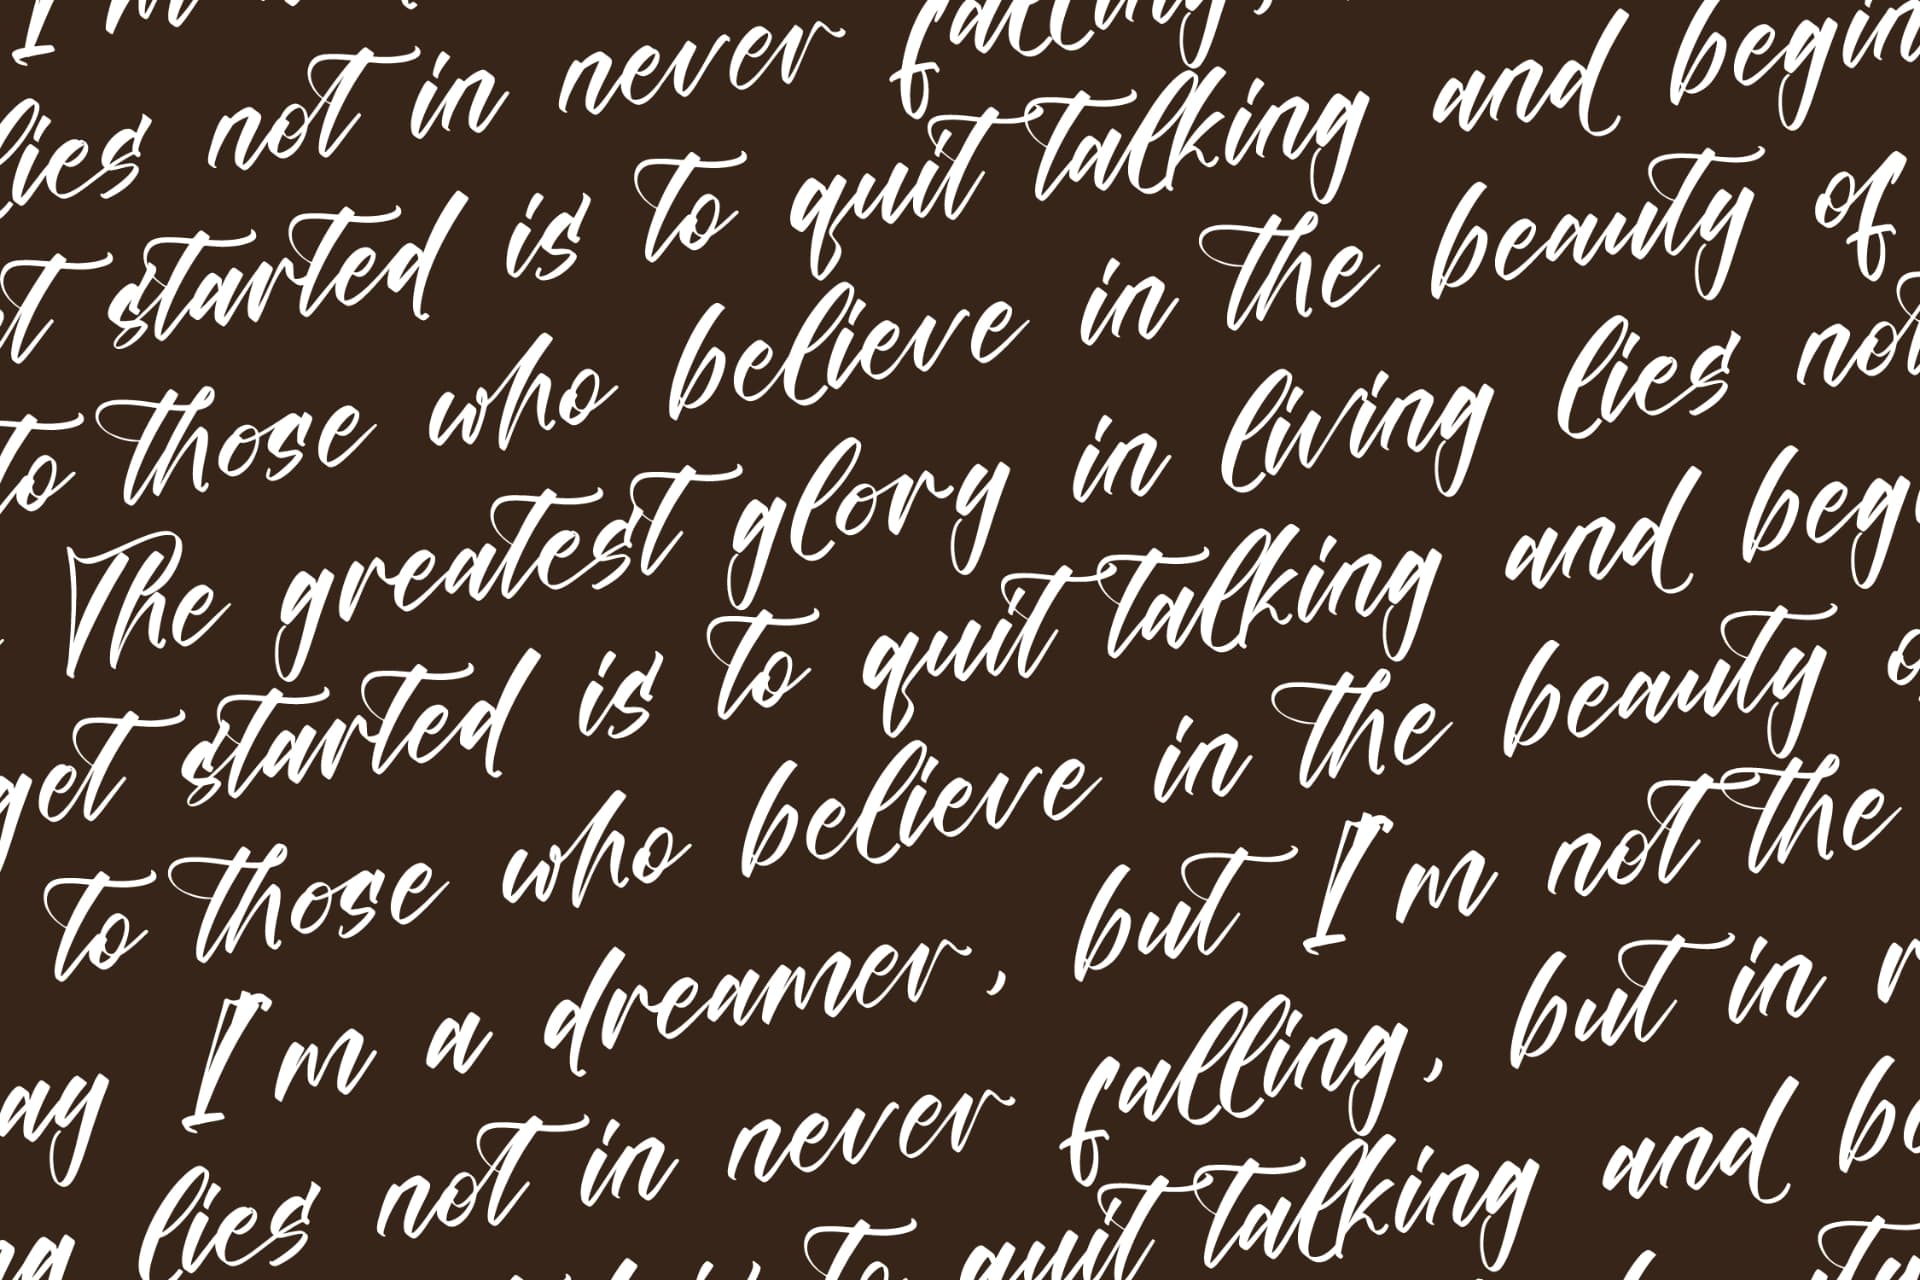 I'm
lies not in never falling,
started is to quit talking and begin
to those who believe in the beauty of
The greatest glory in living lies not
get started is to quit talking and
to those who believe in the beauty
I'm a dreamer, but I'm not the
lies not in never falling, but in
to quit talking and